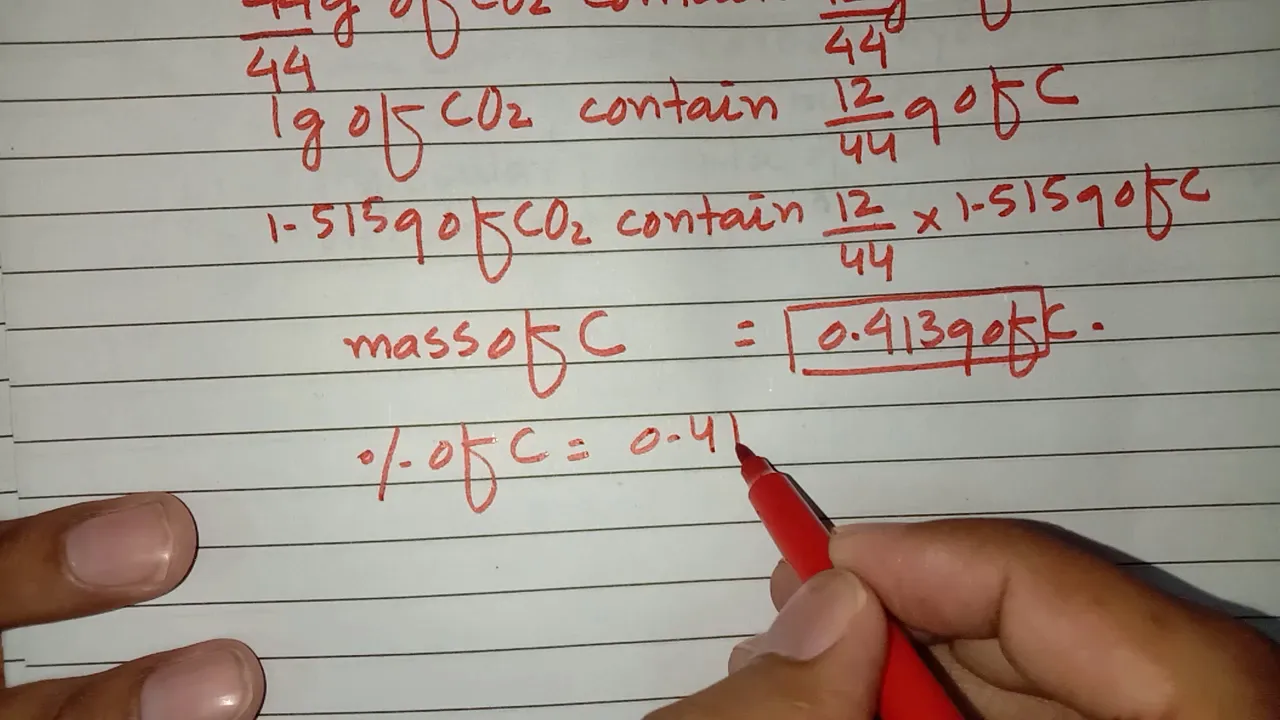 44g of CO2 contain 12/44 g of
1g of CO2 contain 12/44 g of C
1.515g of CO2 contain 12/44 x 1.515g of C
mass of C = 0.413g of C.
% of C = 0.41